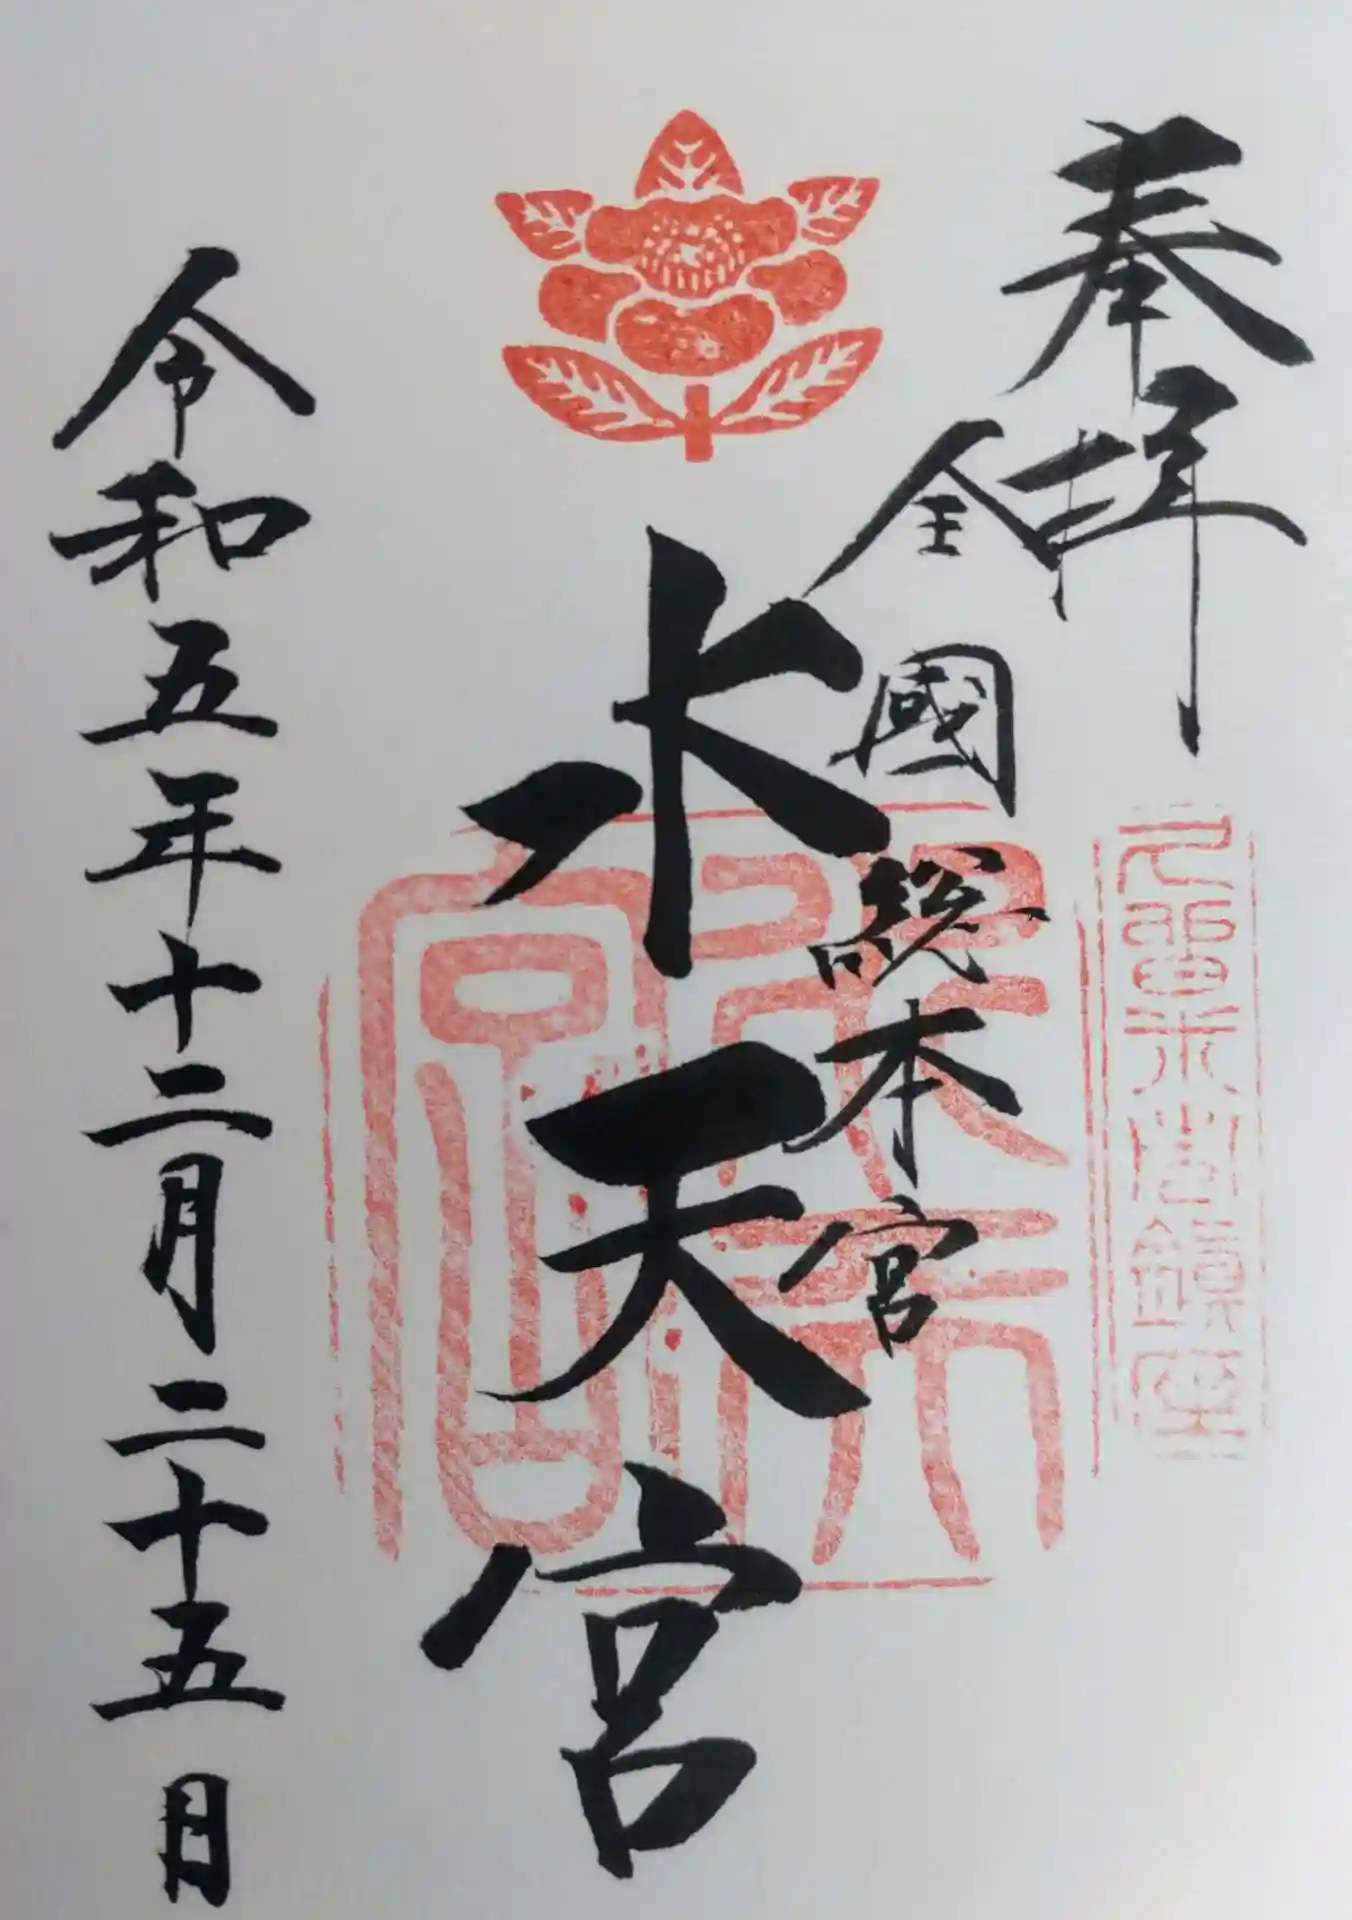 奉拝
全國総本宮
水天宮
水天宮
令和五年十二月二十五日